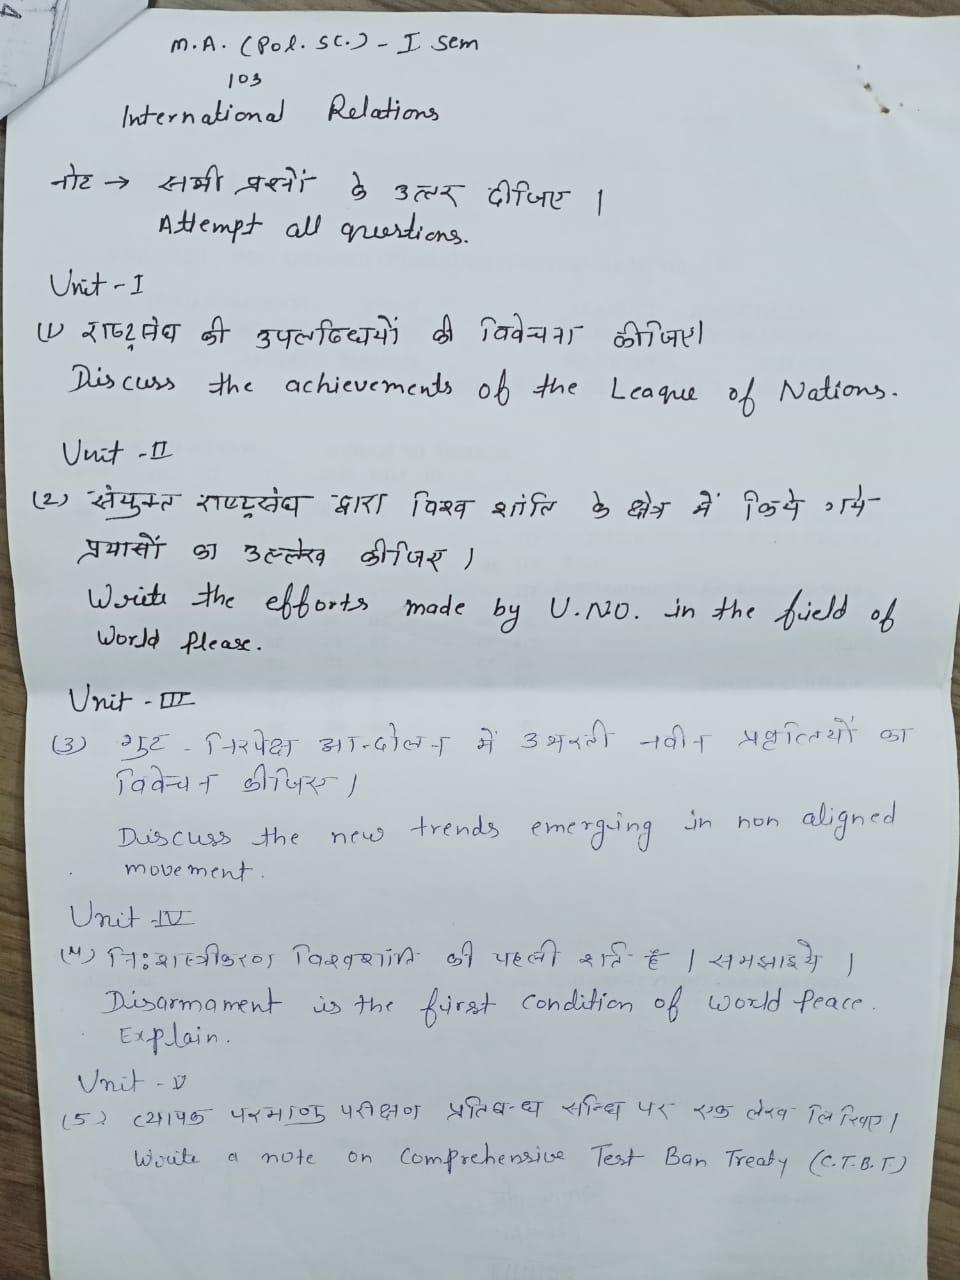 M.A. (Pol. Sc.) - I Sem
103
International Relations
नोट → सभी प्रश्नों के उत्तर दीजिए ।
Attempt all questions.
Unit - I
(1) राष्ट्रसंघ की उपलब्धियों की विवेचना कीजिए।
Discuss the achievements of the League of Nations.
Unit - II
(2) संयुक्त राष्ट्रसंघ द्वारा विश्व शांति के क्षेत्र में किये गये
प्रयासों का उल्लेख कीजिए ।
Write the efforts made by U.NO. in the field of
World Please.
Unit - III
(3) गुट - निरपेक्ष आन्दोलन में उभरती नवीन प्रवृत्तियों का
विवेचन कीजिए ।
Discuss the new trends emerging in non aligned
movement.
Unit - IV
(4) निःशस्त्रीकरण विश्वशांति की पहली शर्त है । समझाइये ।
Disarmament is the first condition of World Peace.
Explain.
Unit - V
(5) व्यापक परमाणु परीक्षण प्रतिबन्ध सन्धि पर एक लेख लिखिए।
Write a note on Comprehensive Test Ban Treaty (C.T.B.T.)